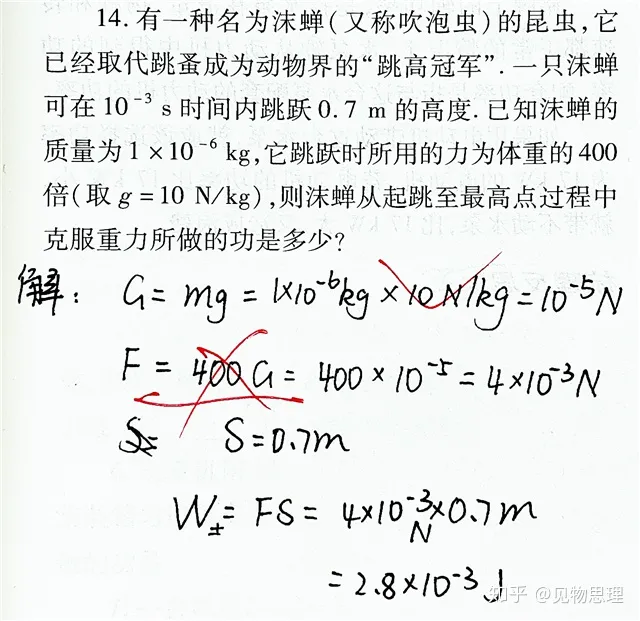 14. 有一种名为沫蝉(又称吹泡虫)的昆虫,它
已经取代跳蚤成为动物界的“跳高冠军”. 一只沫蝉
可在 10⁻³ s 时间内跳跃 0.7 m 的高度. 已知沫蝉的
质量为 1×10⁻⁶ kg,它跳跃时所用的力为体重的 400
倍(取 g=10 N/kg),则沫蝉从起跳至最高点过程中
克服重力所做的功是多少?
解: G = mg = 1×10⁻⁶kg × 10 N/kg = 10⁻⁵N
F = 400 G = 400 × 10⁻⁵ = 4×10⁻³N
S= S=0.7m
W = FS = 4×10⁻³N×0.7m
= 2.8×10⁻³J
知乎 @见物思理